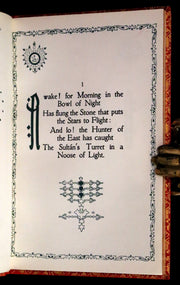 I
Awake! for Morning in the
Bowl of Night
Has flung the Stone that puts
the Stars to Flight:
And lo! the Hunter of
the East has caught
The Sultán's Turret in a
Noose of Light.